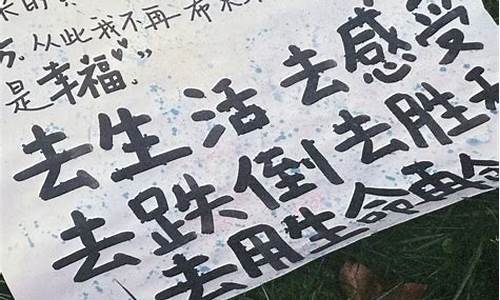 从此我不再
是幸福"
去生活 去感受
去跌倒 去胜
去用生命再